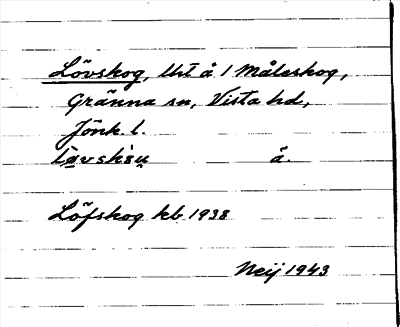 Lövskog, lht å 1 Måleskog,
Gränna sn, Vista hd,
Jönk. l.
å.
Löfskog kb 1938
Neij 1943